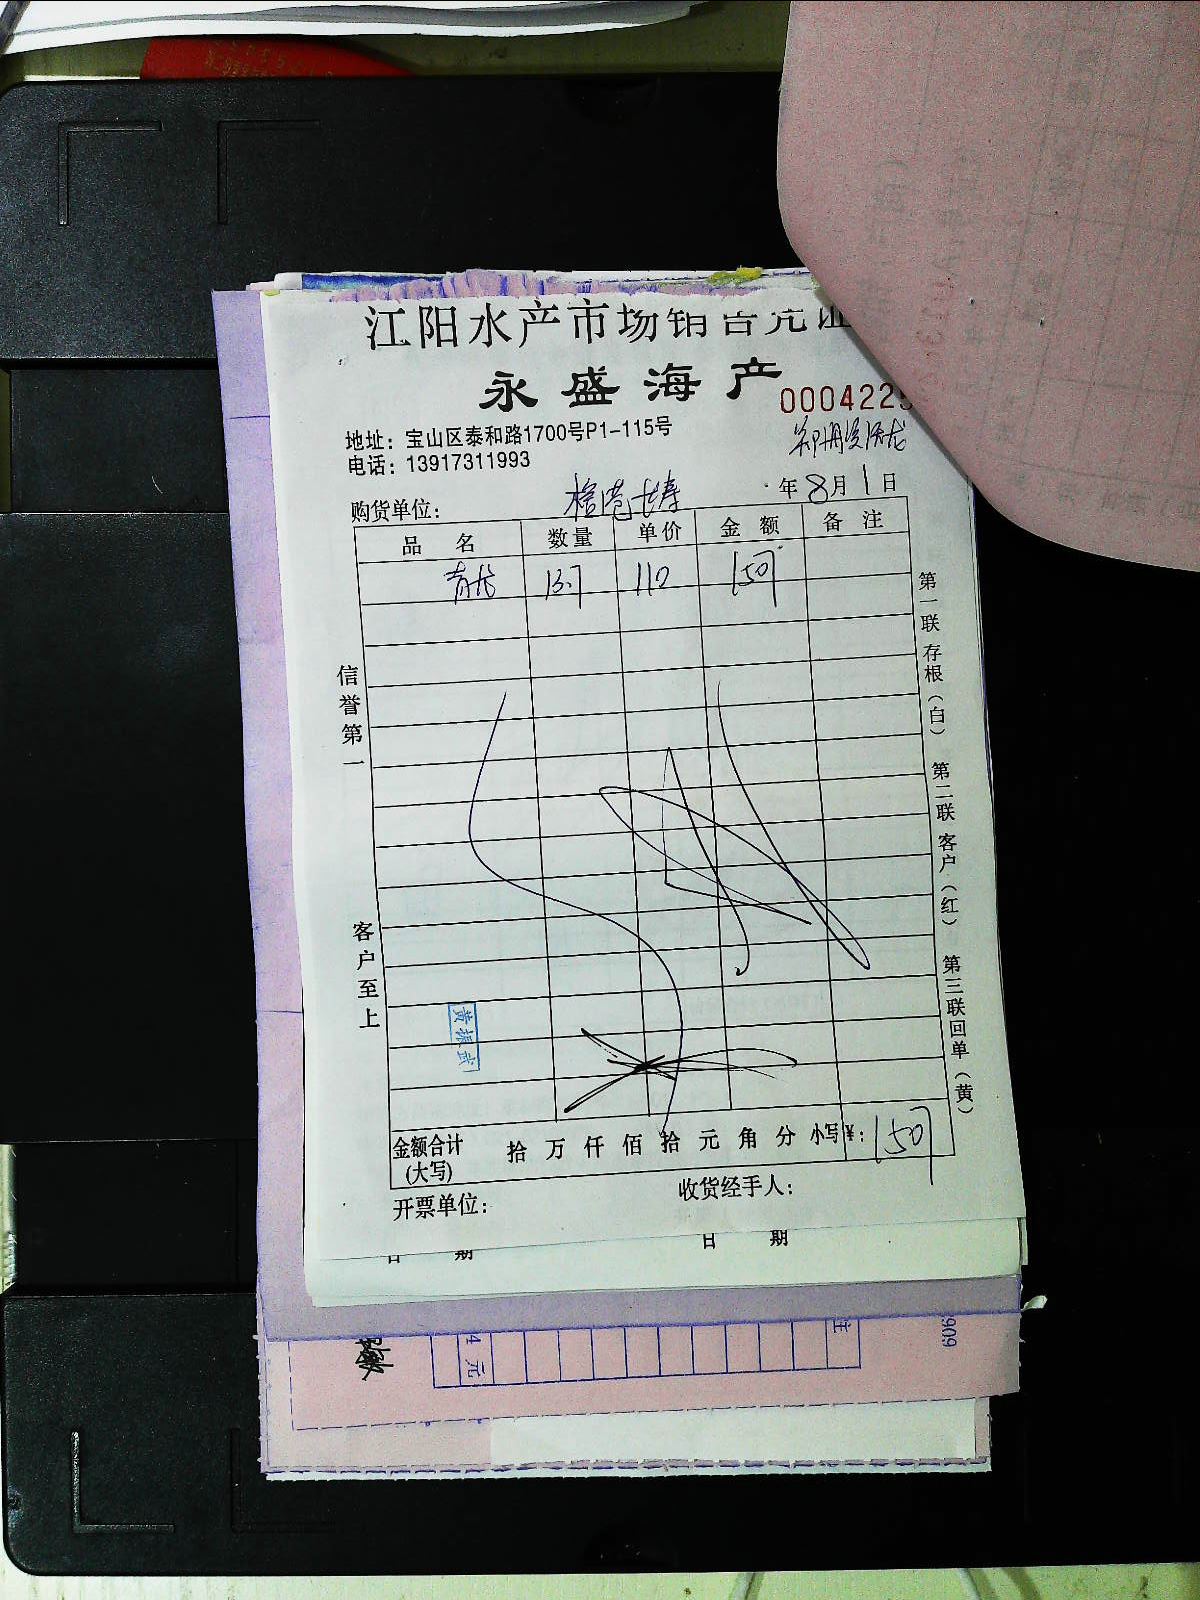 江阳水产市场销售凭证
永盛海产
000422
地址：宝山区泰和路1700号P1-115号
电话：13917311993
购货单位：
年 8月 1日
品名 数量 单价 金额 备注
青龙 13.7 110 1507
信誉第一
客户至上
第一联 存根（白） 第二联 客户（红） 第三联 回单（黄）
黄振武
金额合计(大写) 拾 万 仟 佰 拾 元 角 分 小写¥：1507
开票单位：
收货经手人：
日 期 日 期
4 元
注
909